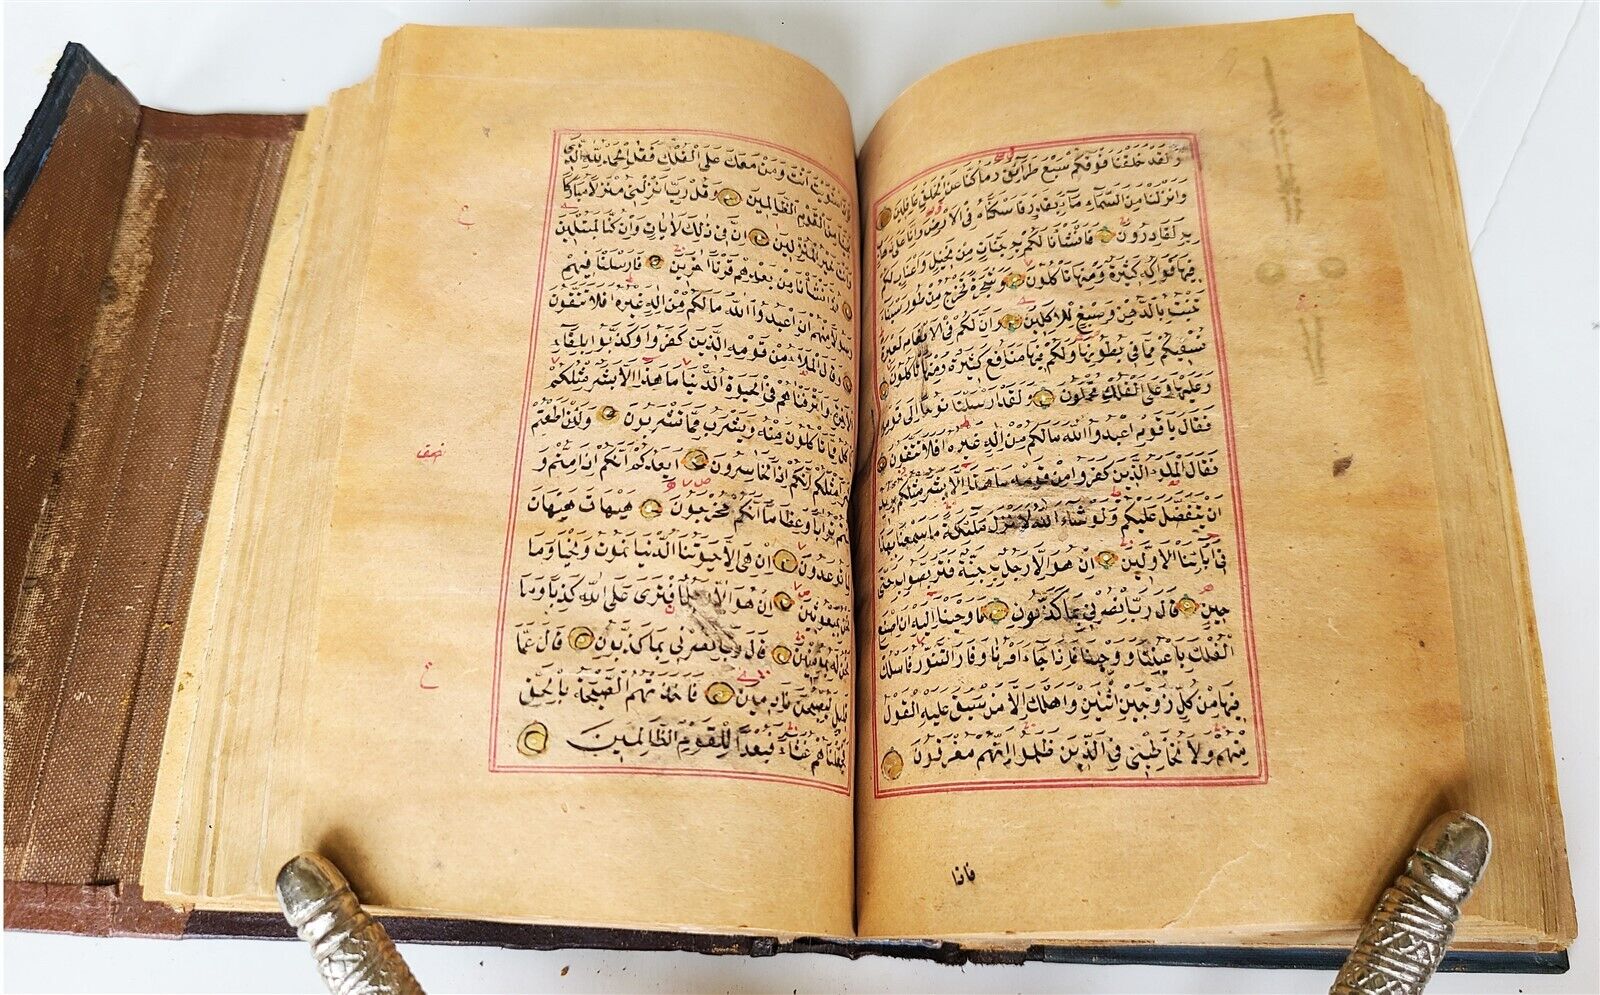 وَلَقَدْ خَلَقْنَا فَوْقَكُمْ سَبْعَ طَرَائِقَ وَمَا كُنَّا عَنِ الْخَلْقِ غَافِلِينَ
وَاَنْزَلْنَا مِنَ السَّمَاءِ مَاءً بِقَدَرٍ فَاَسْكَنَّاهُ فِى الْاَرْضِ وَاِنَّا عَلٰى ذَهَابٍ
بِهِ لَقَادِرُونَ فَاَنْشَأْنَا لَكُمْ بِهِ جَنَّاتٍ مِنْ نَخِيلٍ وَاَعْنَابٍ لَكُمْ
فِيهَا فَوَاكِهُ كَثِيرَةٌ وَمِنْهَا تَأْكُلُونَ وَشَجَرَةً تَخْرُجُ مِنْ طُورِ سَيْنَاءَ
تَنْبُتُ بِالدُّهْنِ وَصِبْغٍ لِلْاٰكِلِينَ وَاِنَّ لَكُمْ فِى الْاَنْعَامِ لَعِبْرَةً
نُسْقِيكُمْ مِمَّا فِى بُطُونِهَا وَلَكُمْ فِيهَا مَنَافِعُ كَثِيرَةٌ وَمِنْهَا تَأْكُلُونَ
وَعَلَيْهَا وَعَلَى الْفُلْكِ تُحْمَلُونَ وَلَقَدْ اَرْسَلْنَا نُوحًا اِلٰى قَوْمِهِ
فَقَالَ يَا قَوْمِ اعْبُدُوا اللّٰهَ مَا لَكُمْ مِنْ اِلٰهٍ غَيْرُهُ اَفَلَا تَتَّقُونَ
فَقَالَ الْمَلَؤُا الَّذِينَ كَفَرُوا مِنْ قَوْمِهِ مَا هٰذَا اِلَّا بَشَرٌ مِثْلُكُمْ يُرِيدُ
اَنْ يَتَفَضَّلَ عَلَيْكُمْ وَلَوْ شَاءَ اللّٰهُ لَاَنْزَلَ مَلٰئِكَةً مَا سَمِعْنَا بِهٰذَا
فِى اٰبَائِنَا الْاَوَّلِينَ اِنْ هُوَ اِلَّا رَجُلٌ بِهِ جِنَّةٌ فَتَرَبَّصُوا بِهِ حَتّٰى
حِينٍ قَالَ رَبِّ انْصُرْنِى بِمَا كَذَّبُونِ فَاَوْحَيْنَا اِلَيْهِ اَنِ اصْنَعِ
الْفُلْكَ بِاَعْيُنِنَا وَوَحْيِنَا فَاِذَا جَاءَ اَمْرُنَا وَفَارَ التَّنُّورُ فَاسْلُكْ
فِيهَا مِنْ كُلٍّ زَوْجَيْنِ اثْنَيْنِ وَاَهْلَكَ اِلَّا مَنْ سَبَقَ عَلَيْهِ الْقَوْلُ
مِنْهُمْ وَلَا تُخَاطِبْنِى فِى الَّذِينَ ظَلَمُوا اِنَّهُمْ مُغْرَقُونَ
فاذا
فَاِذَا اسْتَوَيْتَ اَنْتَ وَمَنْ مَعَكَ عَلَى الْفُلْكِ فَقُلِ الْحَمْدُ لِلّٰهِ الَّذِى
نَجّٰينَا مِنَ الْقَوْمِ الظَّالِمِينَ وَقُلْ رَبِّ اَنْزِلْنِى مُنْزَلًا مُبَارَكًا
وَاَنْتَ خَيْرُ الْمُنْزِلِينَ اِنَّ فِى ذٰلِكَ لَاٰيَاتٍ وَاِنْ كُنَّا لَمُبْتَلِينَ
ثُمَّ اَنْشَأْنَا مِنْ بَعْدِهِمْ قَرْنًا اٰخَرِينَ فَاَرْسَلْنَا فِيهِمْ
رَسُولًا مِنْهُمْ اَنِ اعْبُدُوا اللّٰهَ مَا لَكُمْ مِنْ اِلٰهٍ غَيْرُهُ اَفَلَا تَتَّقُونَ
وَقَالَ الْمَلَاُ مِنْ قَوْمِهِ الَّذِينَ كَفَرُوا وَكَذَّبُوا بِلِقَاءِ
الْاٰخِرَةِ وَاَتْرَفْنَاهُمْ فِى الْحَيٰوةِ الدُّنْيَا مَا هٰذَا اِلَّا بَشَرٌ مِثْلُكُمْ
يَأْكُلُ مِمَّا تَأْكُلُونَ مِنْهُ وَيَشْرَبُ مِمَّا تَشْرَبُونَ وَلَئِنْ اَطَعْتُمْ
بَشَرًا مِثْلَكُمْ اِنَّكُمْ اِذًا لَخَاسِرُونَ اَيَعِدُكُمْ اَنَّكُمْ اِذَا مِتُّمْ وَ
كُنْتُمْ تُرَابًا وَعِظَامًا اَنَّكُمْ مُخْرَجُونَ هَيْهَاتَ هَيْهَاتَ
لِمَا تُوعَدُونَ اِنْ هِىَ اِلَّا حَيٰوتُنَا الدُّنْيَا نَمُوتُ وَنَحْيَا وَمَا
نَحْنُ بِمَبْعُوثِينَ اِنْ هُوَ اِلَّا رَجُلٌ افْتَرٰى عَلَى اللّٰهِ كَذِبًا وَمَا
نَحْنُ لَهُ بِمُؤْمِنِينَ قَالَ رَبِّ انْصُرْنِى بِمَا كَذَّبُونِ قَالَ عَمَّا
قَلِيلٍ لَيُصْبِحُنَّ نَادِمِينَ فَاَخَذَتْهُمُ الصَّيْحَةُ بِالْحَقِّ
فَجَعَلْنَاهُمْ غُثَاءً فَبُعْدًا لِلْقَوْمِ الظَّالِمِينَ
ع
نصف
ع